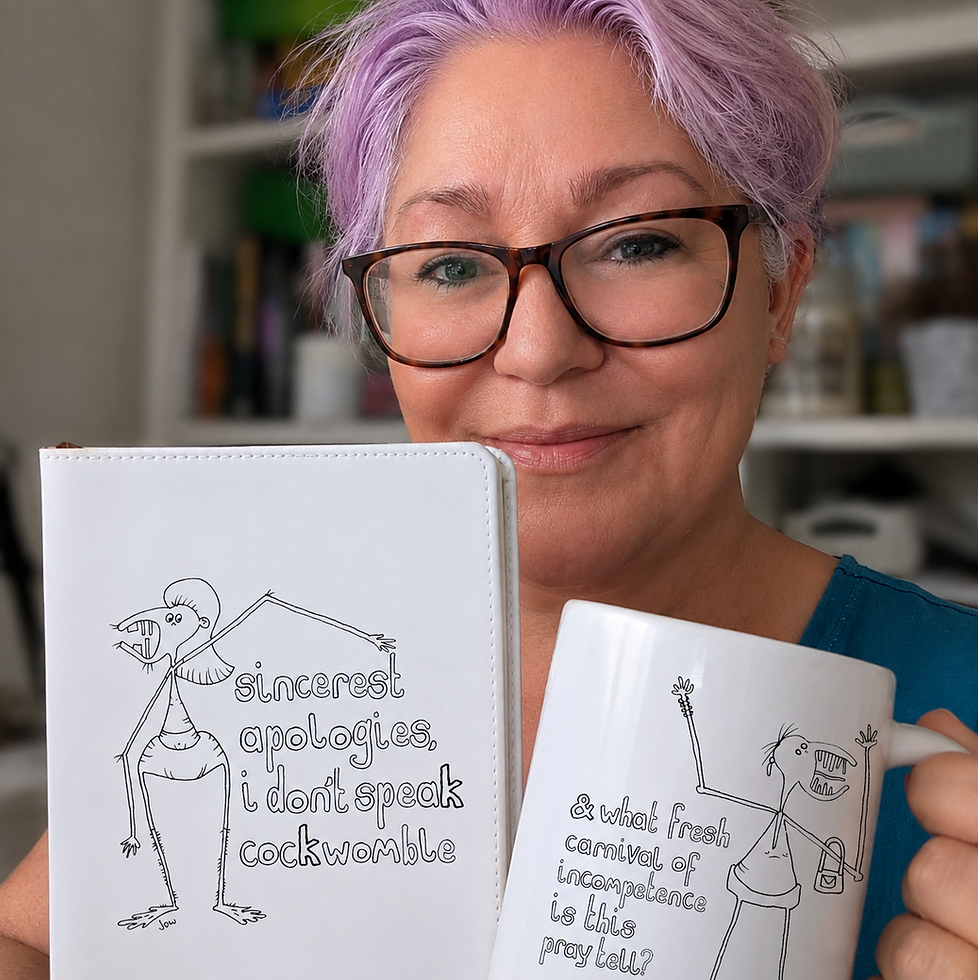 sincerest
apologies,
i don't speak
cockwomble
Jow
& what fresh
carnival of
incompetence
is this
pray tell?